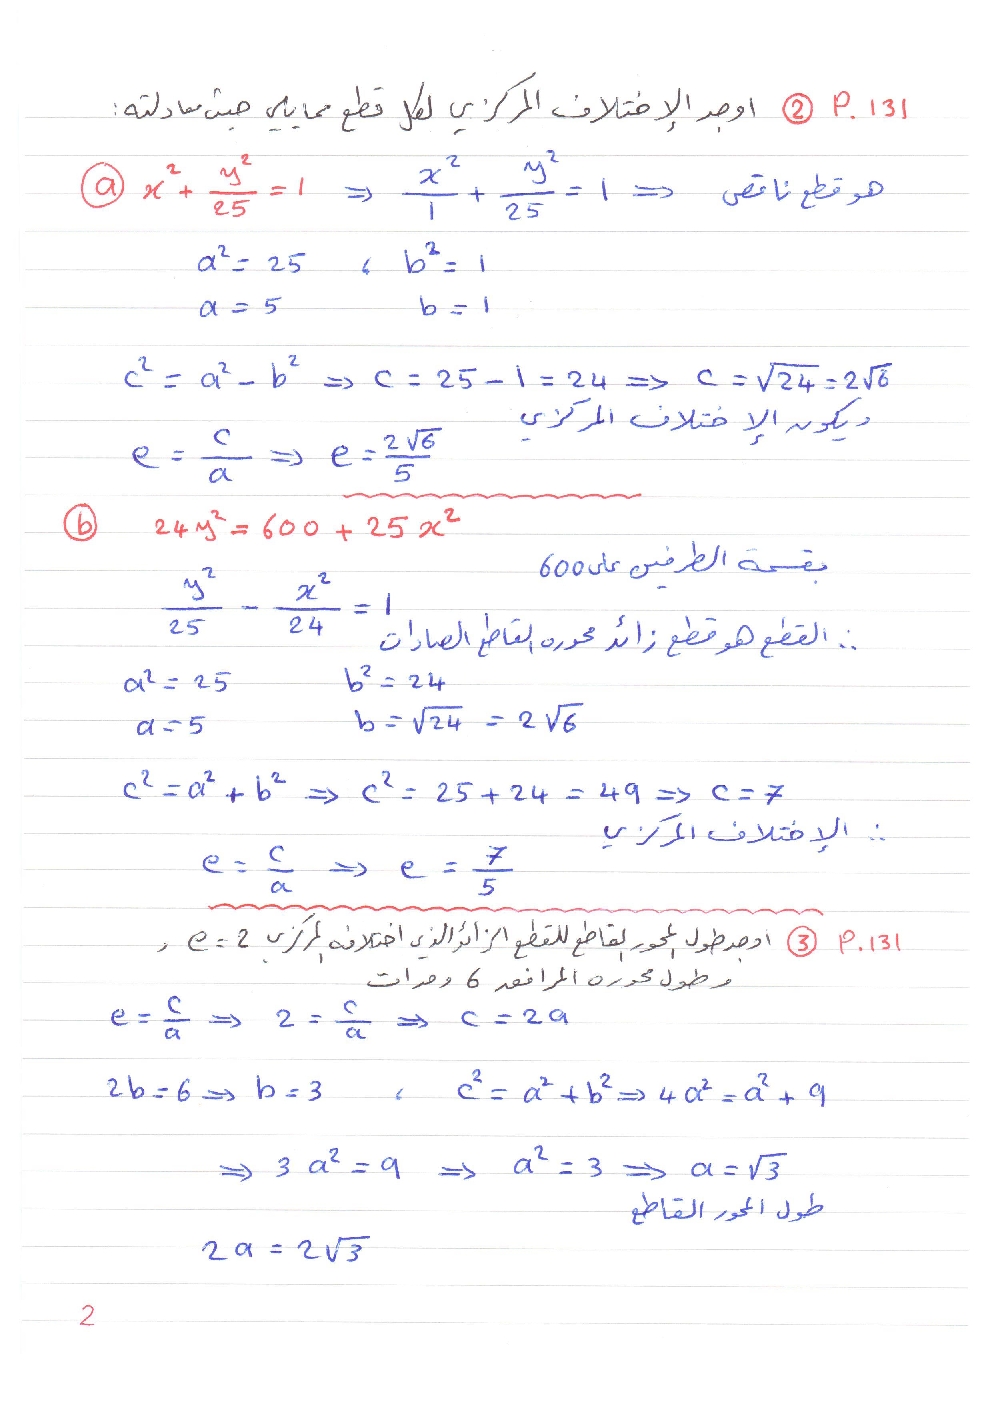 P. 131 ② اوجد الإختلاف المركزي لكل قطع مما يلي حيث معادلته:
ⓐ x² + y²/25 = 1 ⇒ x²/1 + y²/25 = 1 ⇒ هو قطع ناقص
a² = 25 ، b² = 1
a = 5 b = 1
c² = a² - b² ⇒ c = 25 - 1 = 24 ⇒ c = √24 = 2√6
ويكون الإختلاف المركزي
e = c/a ⇒ e = 2√6/5
ⓑ 24y² = 600 + 25x²
بقسمة الطرفين على 600
y²/25 - x²/24 = 1
∴ القطع هو قطع زائد محوره القاطع الصادات
a² = 25 b² = 24
a = 5 b = √24 = 2√6
c² = a² + b² ⇒ c² = 25 + 24 = 49 ⇒ c = 7
∴ الإختلاف المركزي
e = c/a ⇒ e = 7/5
P. 131 ③ اوجد طول المحور القاطع للقطع الزائد الذي اختلافه المركزي e = 2 ,
وطول محوره المرافق 6 وحدات
e = c/a ⇒ 2 = c/a ⇒ c = 2a
2b = 6 ⇒ b = 3 ، c² = a² + b² ⇒ 4a² = a² + 9
⇒ 3a² = 9 ⇒ a² = 3 ⇒ a = √3
طول المحور القاطع
2a = 2√3
2